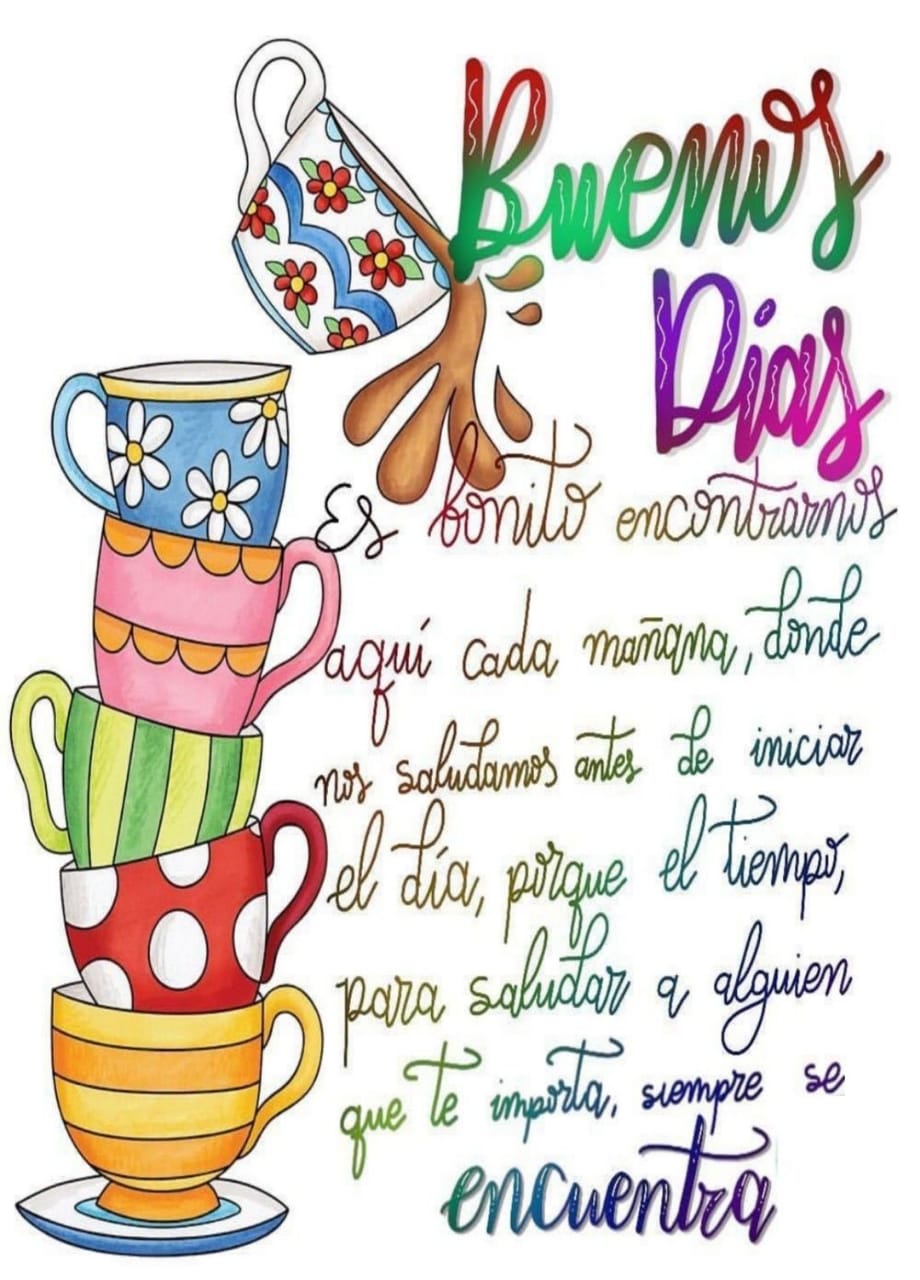 Buenos
Días
Es bonito encontrarnos
aquí cada mañana, donde
nos saludamos antes de iniciar
el día, porque el tiempo,
para saludar a alguien
que te importa, siempre se
encuentra